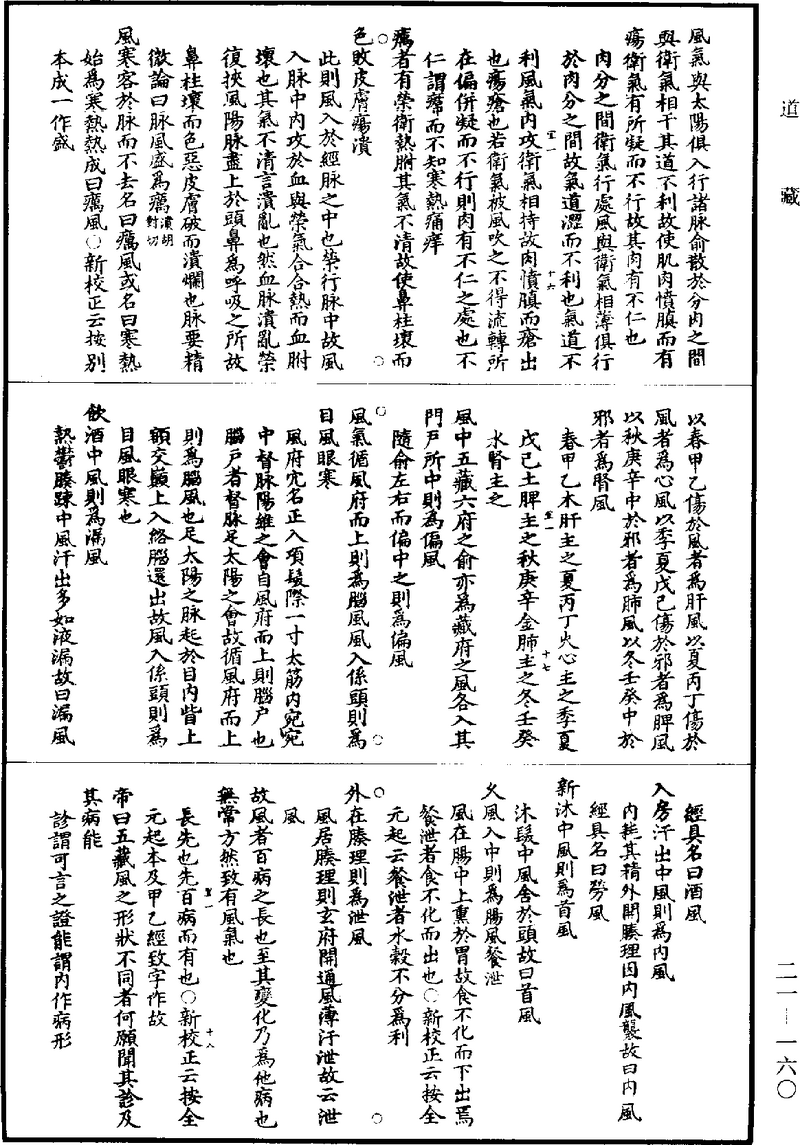 道藏
風氣與太陽俱入行諸脉俞散於分肉之間
與衛氣相干其道不利故使肌肉憤䐜而有
瘍衛氣有所凝而不行故其肉有不仁也
肉分之間衛氣行處風與衛氣相薄俱行
於肉分之間故氣道澀而不利也氣道不
利風氣內攻衛氣相持故肉憤䐜而瘡出
也瘍瘡也若衛氣被風吹之不得流轉所
在偏併凝而不行則肉有不仁之處也不
仁謂㿏而不知寒熱痛痒
癘者有榮衛熱胕其氣不清故使鼻柱壞而
色敗皮膚瘍潰
此則風入於經脉之中也榮行脉中故風
入脉中內攻於血與榮氣合合熱而血胕
壞也其氣不清言潰亂也然血脉潰亂榮
復挾風陽脉盡上於頭鼻爲呼吸之所故
鼻柱壞而色惡皮膚破而潰爛也脉要精
微論曰脉風盛爲癘潰胡對切
風寒客於脉而不去名曰癘風或名曰寒熱
始爲寒熱熱成曰癘風○新校正云按別
本成一作盛
以春甲乙傷於風者爲肝風以夏丙丁傷於
風者爲心風以季夏戊己傷於邪者爲脾風
以秋庚辛中於邪者爲肺風以冬壬癸中於
邪者爲腎風
春甲乙木肝主之夏丙丁火心主之季夏
戊己土脾主之秋庚辛金肺主之冬壬癸
水腎主之
風中五藏六府之俞亦爲藏府之風各入其
門戶所中則爲偏風
隨俞左右而偏中之則爲偏風
風氣循風府而上則爲腦風風入係頭則爲
目風眼寒
風府穴名正入項髮際一寸大筋內宛宛
中督脉陽維之會自風府而上則腦戶也
腦戶者督脉足太陽之會故循風府而上
則爲腦風也足太陽之脉起於目內眥上
額交巔上入絡腦還出故風入係頭則爲
目風眼寒也
飲酒中風則爲漏風
熱鬱腠踈中風汗出多如液漏故曰漏風
經具名曰酒風
入房汗出中風則爲內風
內耗其精外開腠理因內風襲故曰內風
經具名曰勞風
新沐中風則爲首風
沐髮中風舍於頭故曰首風
久風入中則爲腸風飧泄
風在腸中上熏於胃故食不化而下出焉
飧泄者食不化而出也○新校正云按全
元起云飧泄者水穀不分爲利
外在腠理則爲泄風
風居腠理則玄府開通風薄汗泄故云泄
風
故風者百病之長也至其變化乃爲他病也
無常方然致有風氣也
長先也先百病而有也○新校正云按全
元起本及甲乙經致字作故
帝曰五藏風之形狀不同者何願聞其診及
其病能
診謂可言之證能謂內作病形
二一—一六〇